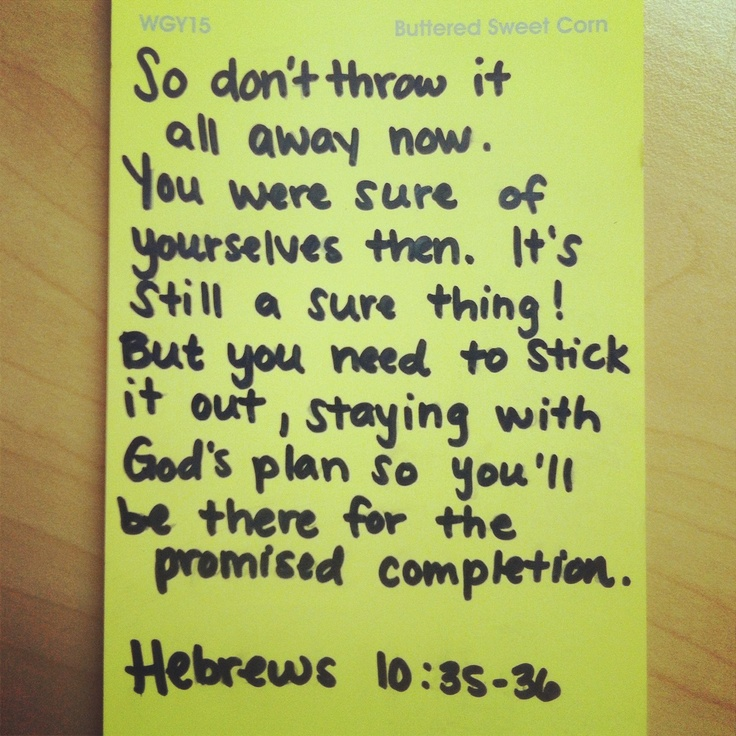 WGY15 Buttered Sweet Corn
So don't throw it
all away now.
You were sure of
yourselves then. It's
still a sure thing!
But you need to stick
it out, staying with
God's plan so you'll
be there for the
promised completion.
Hebrews 10:35-36